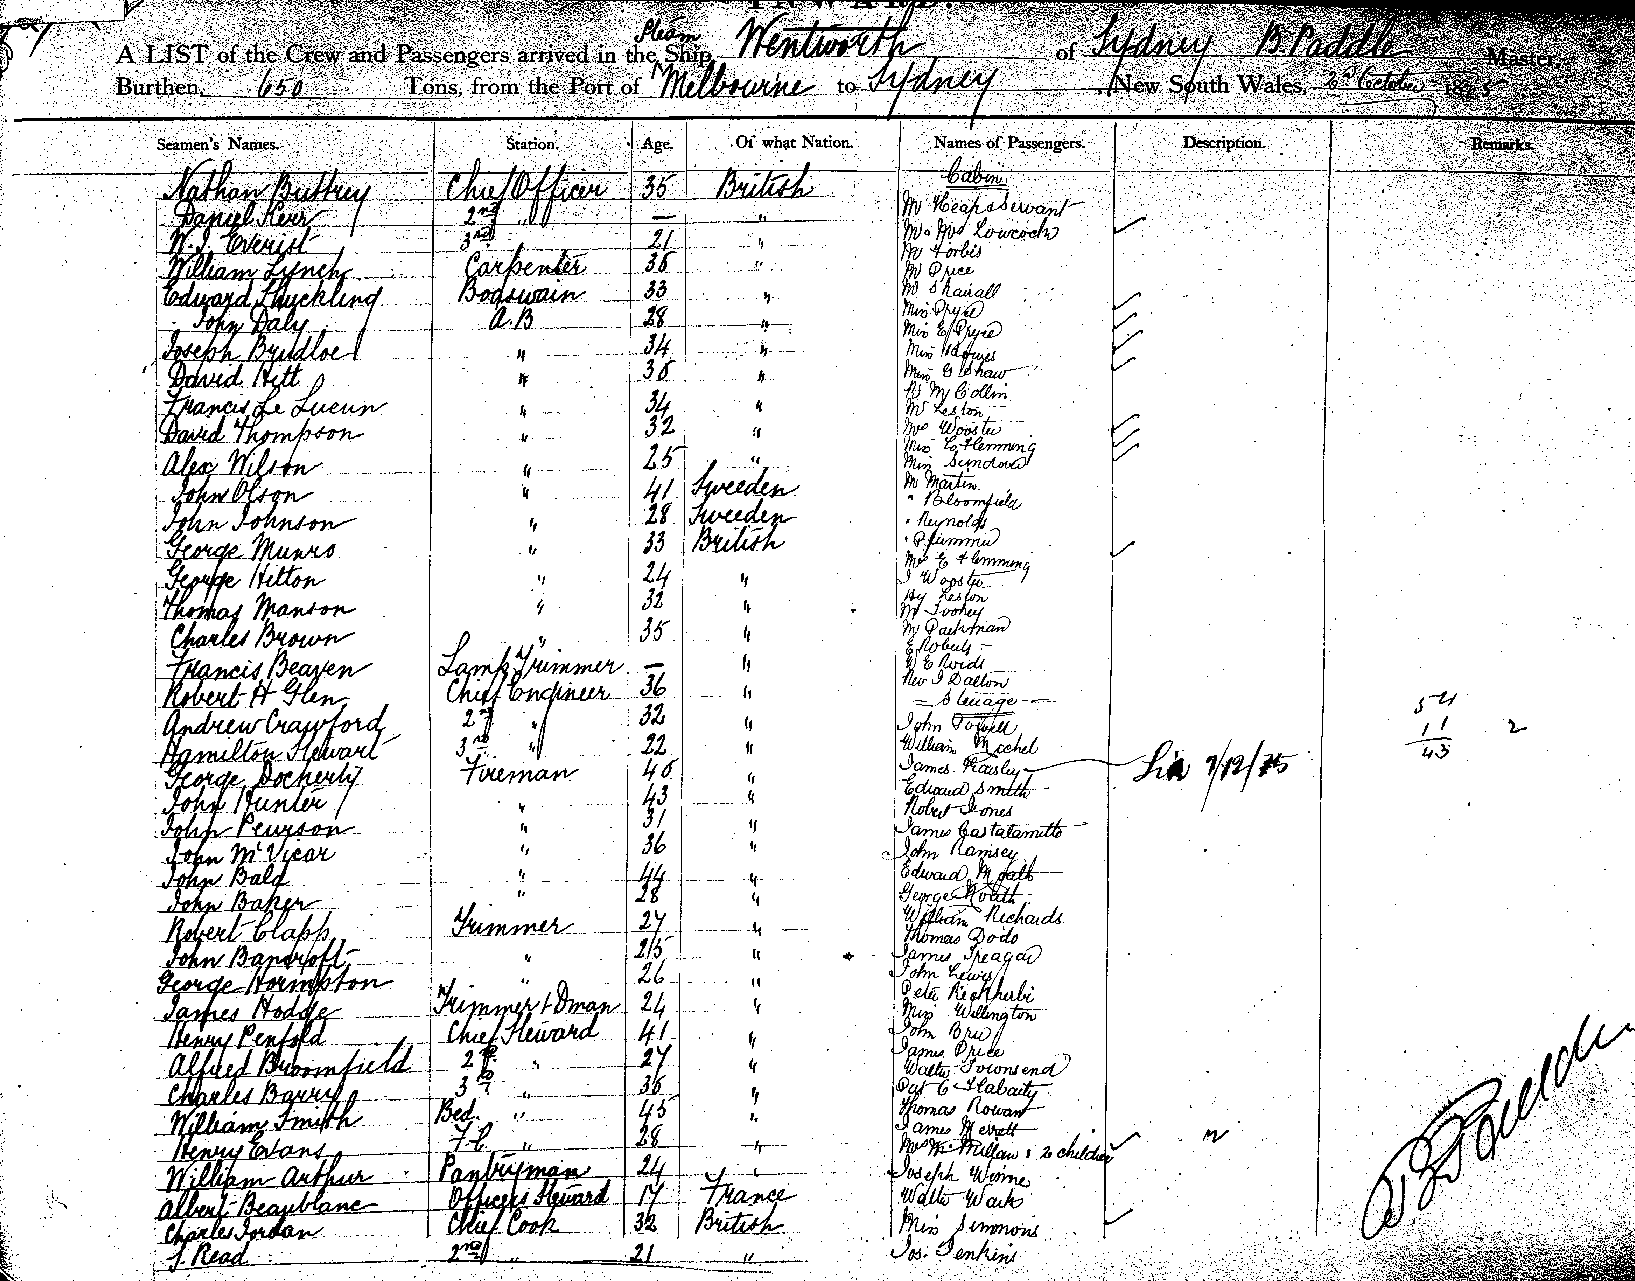 INWARD.
A LIST of the Crew and Passengers arrived in the Ship Steam Wentworth of Sydney B. Paddle Master,
Burthen, 650 Tons, from the Port of Melbourne to Sydney New South Wales, October 1875
Seamen's Names. Station. Age. Of what Nation. Names of Passengers. Description. Remarks.
Cabin
Nathan Buttrey Chief Officer 35 British
Daniel Kerr 2nd " — " Mr Heap & Servant
W. J. Everist 3rd 21 " Mr & Mrs Lowcock
Mr Forbis
William Lynch Carpenter 36 " Mr Price
Edward Shuckling Bodswain 33 " Mr Shairall
John Daly A.B 28 " Miss Pryce
Miss E Pryce
Joseph Bridloe " 34 "
David Hill " 36 " Miss G Shaw
Francis Le Lucun " 34 " Mr Leston
David Thompson " 32 " Mrs Wooster
Miss C Flemming
Alex Wilson " 25 "
John Olson " 41 Sweeden Mr Martin
" Bloomfield
John Johnson " 28 Sweeden " Reynolds
George Munro " 33 British " Plummer
Mrs E Flemming
George Hilton " 24 " J Wooster
Thomas Manson " 32 " Hy Leston
Mr Toohey
Charles Brown " 35 " Mr Packman
E Roberts
Francis Beaven Lamp Trimmer — "
Robert H Glen Chief Engineer 36 " Rev J Dalton
— Steerage — 54
Andrew Crawford 2nd " 32 " John Powell 11 2
Hamilton Stewart 3rd " 22 " William Mochel 43
George Docherty Fireman 40 " James Raisley 7/12/75
Edward Smith
John Hunter " 43 " Robert Jones
John Pearson " 31 " James Castalamitto
John McVicar " 36 " John Ramsey
John Bald " 44 " Edward
John Baker " 28 " George Routh
Robert Clapp Trimmer 27 " William Richards
Thomas Dodo
John Bancroft " 25 " James Treagar
George Hormpton " 26 " John Lewis
James Hodge Trimmer & Dman 24 " Peter
Miss Wellington
Henry Penfold Chief Steward 41 " John Bru
Alfred Broomfield 2nd " 27 " James Price
Walter Townsend
Charles Barry 3rd " 36 " Pat C Flabaity
William Smith Bed. " 45 " Thomas Rowan
Henry Evans F.C. " 28 " James Merrett
Mrs McMillan & 2 children
William Arthur Pantryman 24 " Joseph
Albert Beaublanc Officers Steward 17 France Walter
Charles Jordan Chief Cook 32 British Miss Simmons
J. Read 2nd " 21 " Jos. Jenkins
B Paddle